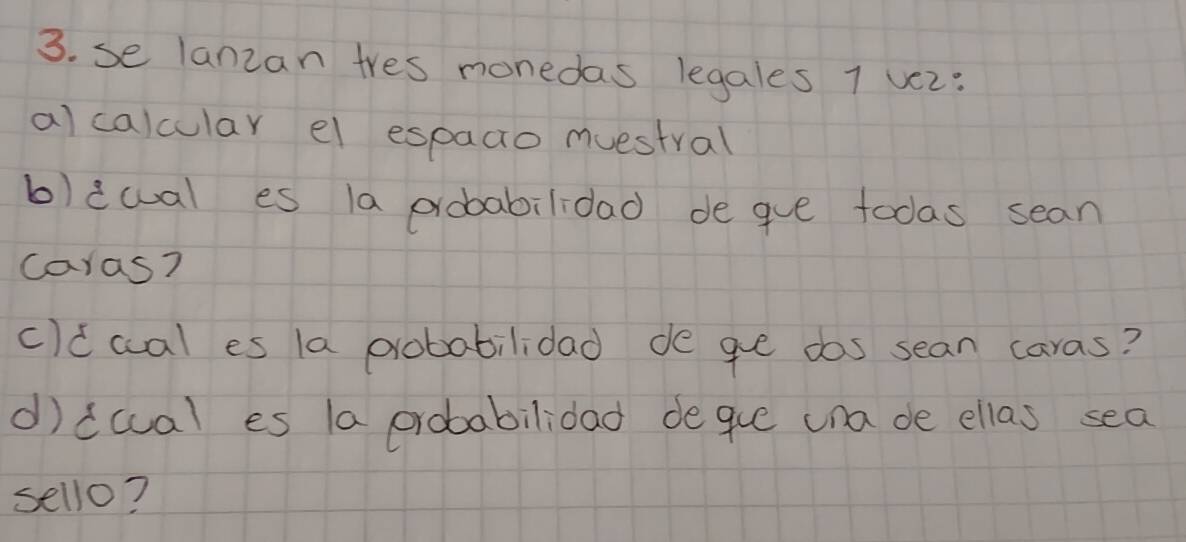 3. se lanzan tres monedas legales 1 vez:
a) calcular el espacio muestral
b) ¿cual es la probabilidad de que todas sean
caras?
c) ¿cual es la probabilidad de que dos sean caras?
d) ¿cual es la probabilidad de que una de ellas sea
sello?